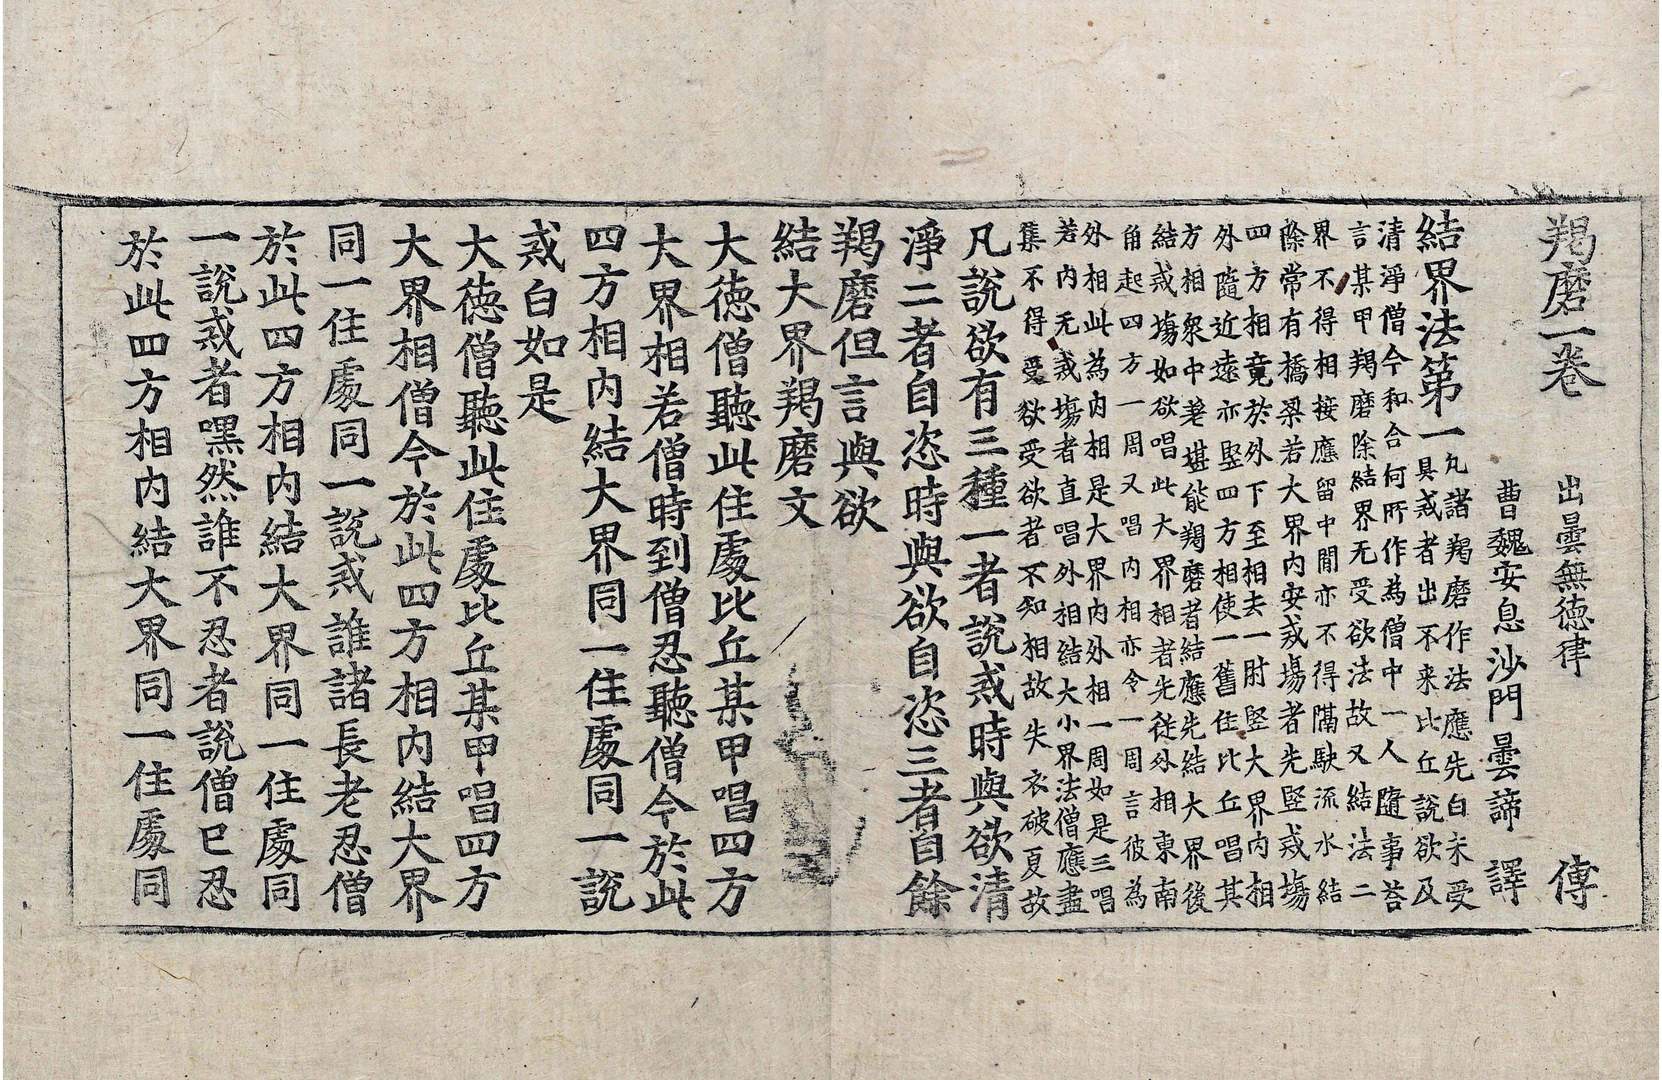 羯磨一卷 出曇無德律 傳
曹魏安息沙門曇諦 譯
結界法第一
凡諸羯磨作法應先白未受
具戒者出不来比丘說欲及
清淨僧今和合何所作為僧中一人隨事荅
言某甲羯磨除結界无受欲法故又結法二
界不得相接應留中間亦不得隔駃流水結
除常有橋梁若大界內安戒塲者先竪戒塲
四方相竟於外下至相去一肘竪大界內相
外隨近遠亦竪四方相使一舊住比丘唱其
方相眾中差堪能羯磨者結應先結大界後
結戒塲如欲唱此大界相者先從外相東南
角起四方一周又唱內相亦令一周言彼為
外相此為內相是大界內外相一周如是三唱
若內无戒塲者直唱外相結大小界法僧應盡
集不得受欲受欲者不知相故失衣破夏故
凡說欲有三種一者說戒時與欲清
淨二者自恣時與欲自恣三者自餘
羯磨但言與欲
結大界羯磨文
大德僧聽此住處比丘某甲唱四方
大界相若僧時到僧忍聽僧今於此
四方相內結大界同一住處同一說
戒白如是
大德僧聽此住處比丘某甲唱四方
大界相僧今於此四方相內結大界
同一住處同一說戒誰諸長老忍僧
於此四方相內結大界同一住處同
一說戒者嘿然誰不忍者說僧已忍
於此四方相內結大界同一住處同